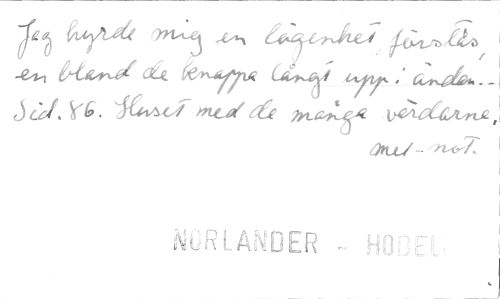 Jag hyrde mig en lägenhet, förstås,
en bland de knappa långt upp i ändan. -
Sid. 86. Huset med de många värdarne.
mel-not.
NORLANDER - HODELL